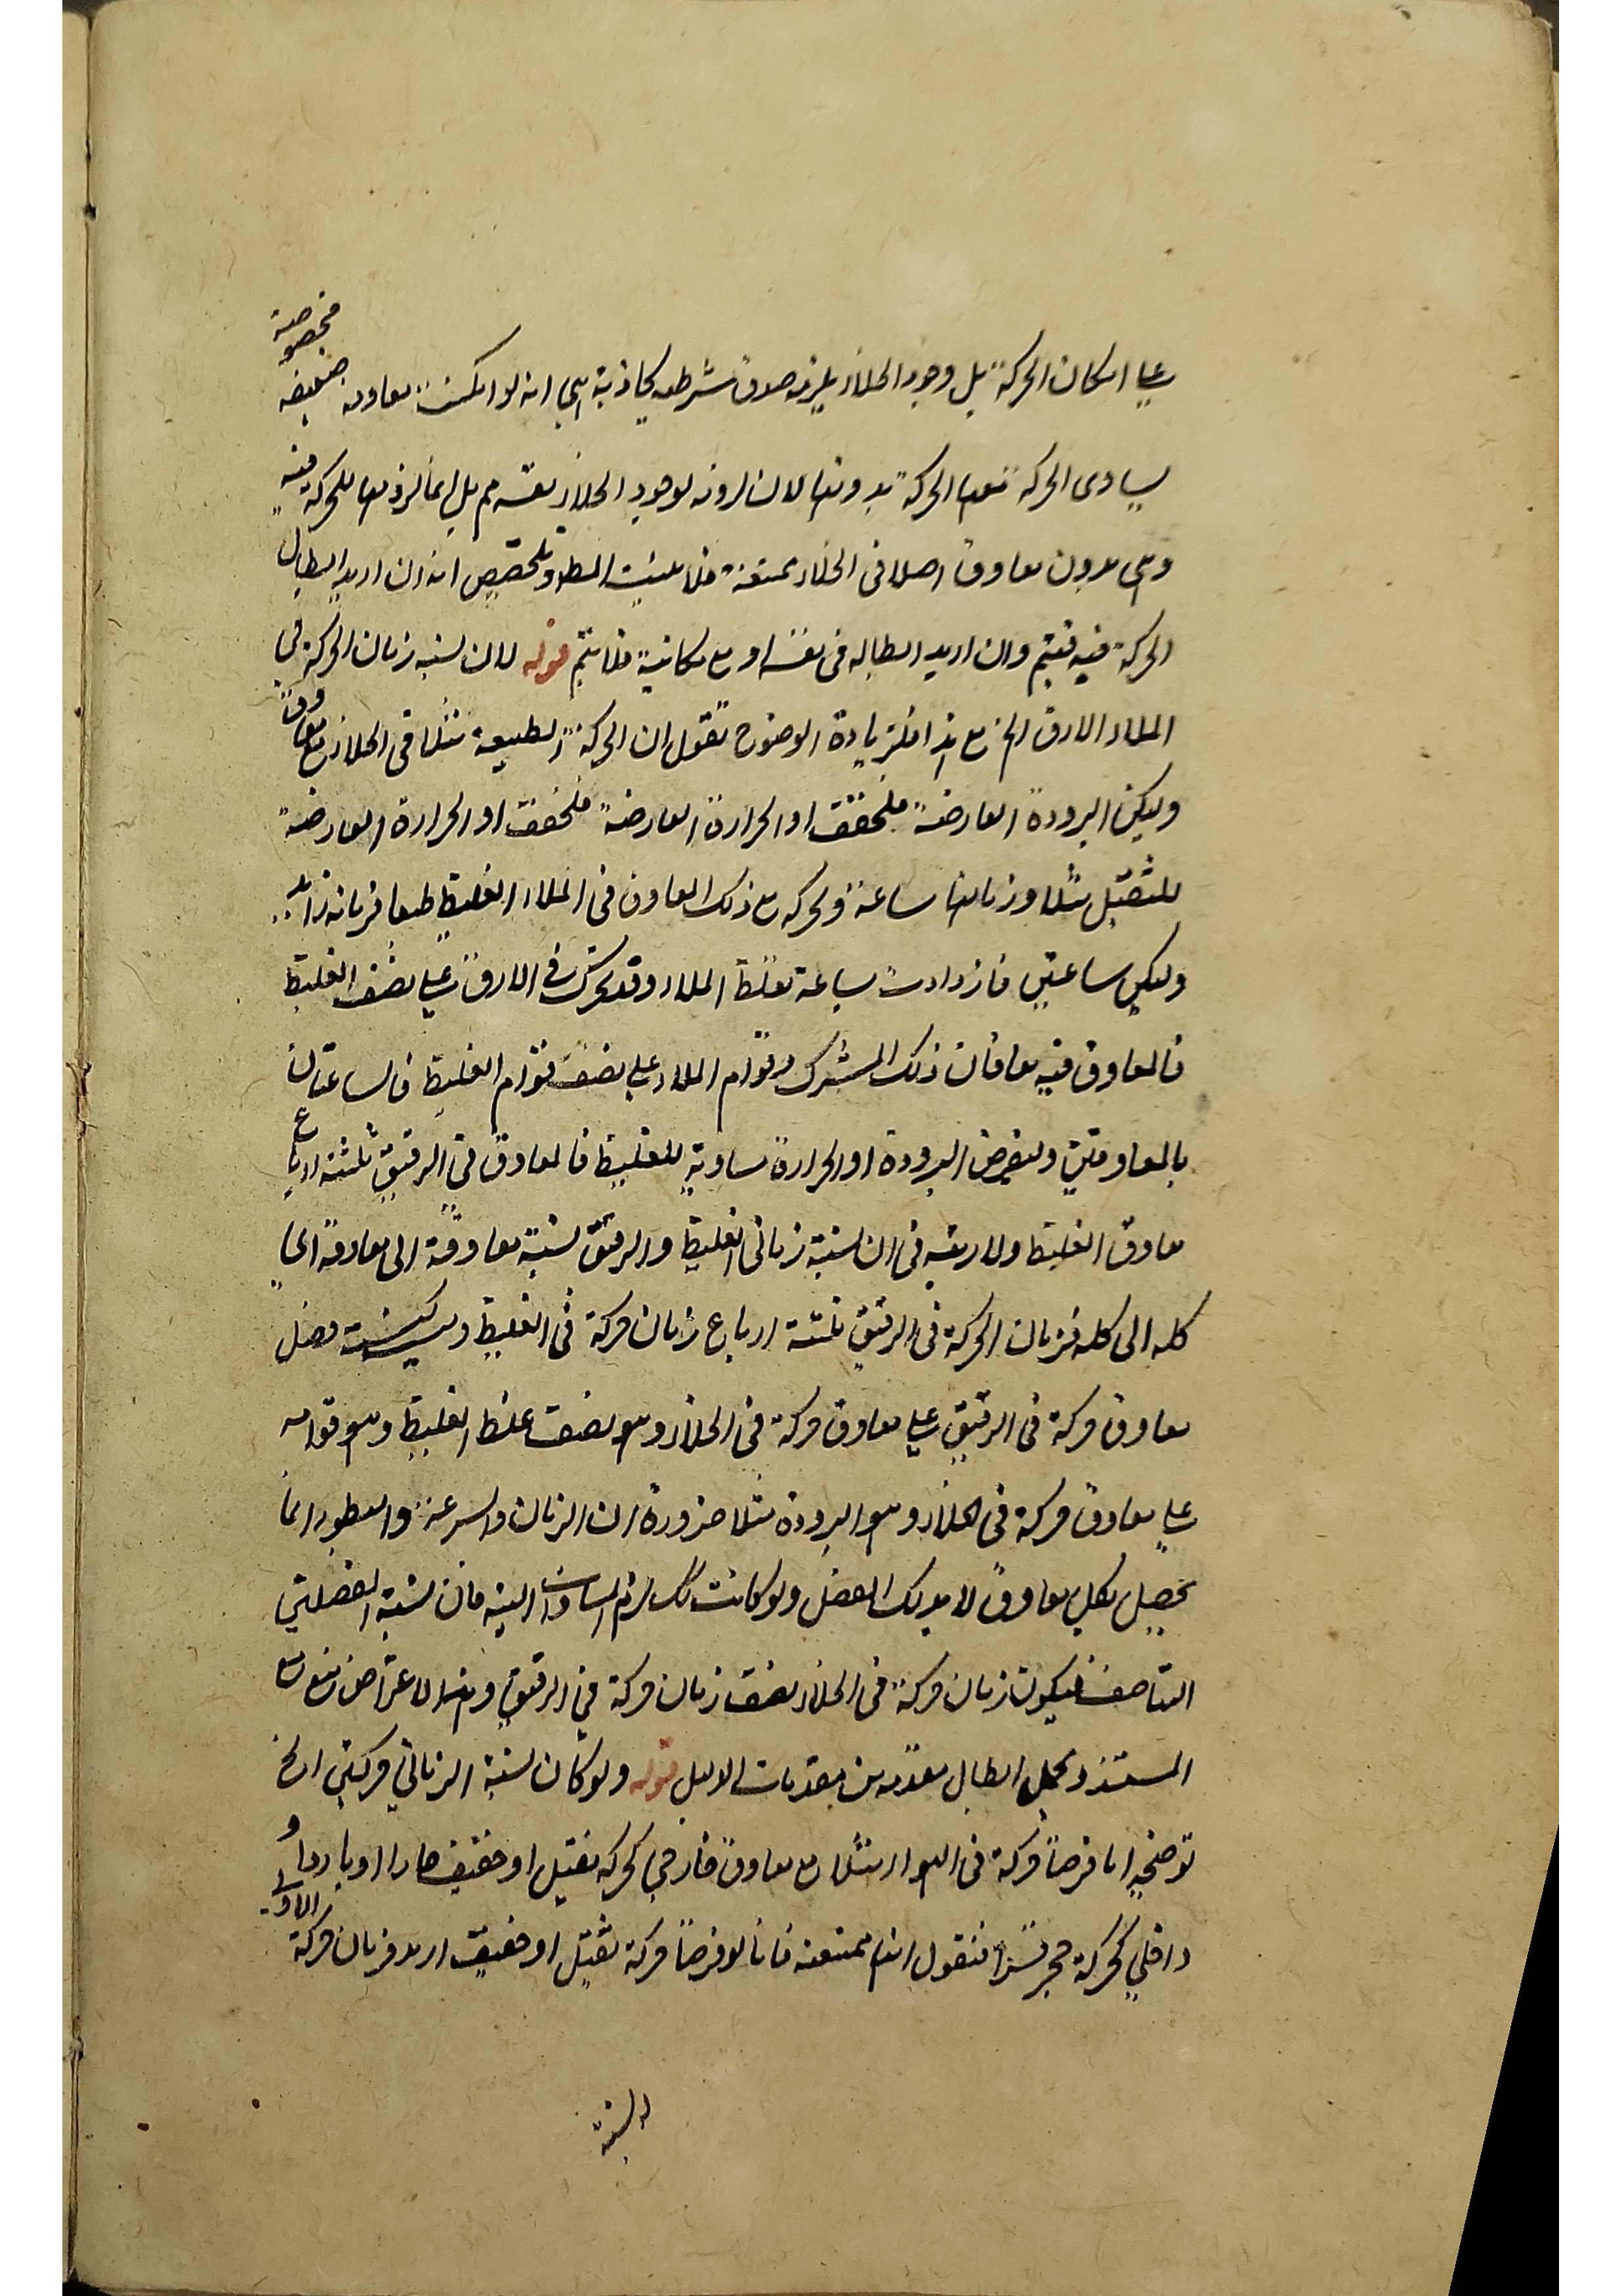 على امكان الحركة بل وجود الخلاء يلزمه صدق شرطية كاذبة هى انه لو امكنت معاوقة ضعيفة مخصوصة
يساوى الحركة معها الحركة بدونها لان لزومه لوجود الخلاء نفسه مم بل انما لزومها للحركة فيه
وهى بدون معاوق اصلا فى الخلاء ممتنعة فلا يثبت المط وتلخيص انه ان اريد ابطال
الحركة فيه فيتم وان اريد ابطاله فى نفسه او مع مكانية فلا يتم قوله لان نسبة زمان الحركة فى
الملاء الارق الخ مع هذا فلزيادة الوضوح نقول ان الحركة الطبيعية مثلا فى الخلاء مع معاوق
وليكن البرودة العارضة للخفيف او الحرارة العارضة
للثقيل مثلا وزمانها ساعة ولحركة مع ذلك المعاوق فى الملاء الغليظ طبعا فزمانه زائد
وليكن ساعتين فازدادت ساعة بغلظ الملاء وقد تحرك فى الارق على نصف الغليظ
فالمعاوق فيه معاوقان ذلك المشترك وقوام الملاء على نصف قوام الغليظ فالساعتان
بالمعاوقتين ولنفرض البرودة او الحرارة مساوية للغليظ فالمعاوق فى الرقيق ثلثة ارباع
معاوق الغليظ ولا ريب فى ان نسبة زمانى الغليظ والرقيق نسبة معاوقة الى معاوقة اى
كله الى كله فزمان الحركة فى الرقيق ثلثة ارباع زمان حركة فى الغليظ وليست فضل
معاوق حركة فى الرقيق على معاوق حركة فى الخلاء وهو نصف غلظ الغليظ وهو قوامه
على معاوق حركة فى الخلاء وهو البرودة مثلا ضرورة ان الزمان والسرعة والبطوء انما
يحصل بكل معاوق لا بذلك الفضل ولو كانت لك لزم المساواة البتة فان نسبة الفضلتين
التناصف فيكون زمان حركة فى الخلاء نصف زمان حركة فى الرقيق وهذا الاعتراض منع مع
المستند ومحل ابطال مقدمة من مقدمات الدليل قوله ولو كان نسبة الزمانى حركتين الخ
توضيحه انا فرضنا حركة فى الهواء مثلا مع معاوق خارجى كحركة ثقيل او خفيف حارا او باردا و
داخلى كحركة حجر قسرا فنقول انها ممتنعة فانا لو فرضنا حركة ثقيل او خفيف اريد فزمان حركة الاولى
النسبة